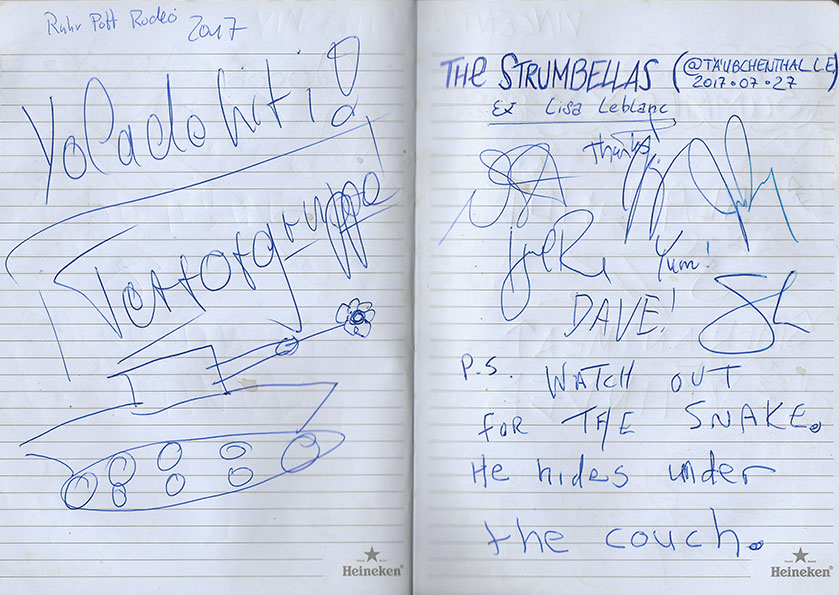 Ruhr Pott Rodeo 2017
Yolacdohiti!
Terrorgruppe
Heineken
THE STRUMBELLAS (@TÄUBCHENTHALLE)
2017.07.27
Lisa Leblanc
Thanks!
Yum!
DAVE!
P.S. WATCH OUT
FOR THE SNAKE.
He hides under
the couch.
Heineken